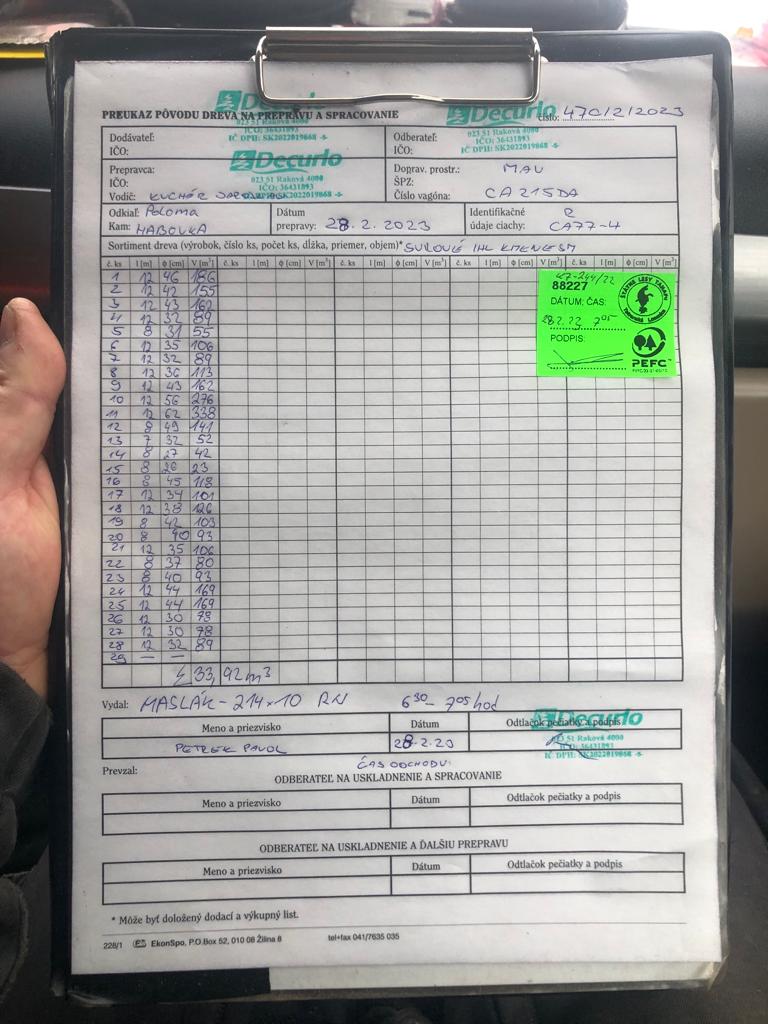 Decurlo
PREUKAZ PÔVODU DREVA NA PREPRAVU A SPRACOVANIE
číslo: 470/2/2023
Decurlo
023 51 Raková 4000
IČO: 36431893
IČ DPH: SK2022019868
Dodávateľ:
IČO:
Odberateľ:
IČO:
023 51 Raková 4000
IČO: 36431893
IČ DPH: SK2022019868
Prepravca:
IČO:
Vodič: KUCHÁR
Decurlo
023 51 Raková 4000
IČO: 36431893
SK2022019868
Doprav. prostr.: MAN
ŠPZ:
Číslo vagóna: CA215DA
Odkiaľ: Poloma
Kam: HABOVKA
Dátum
prepravy: 28. 2. 2023
Identifikačné R
údaje ciachy: CA77-4
Sortiment dreva (výrobok, číslo ks, počet ks, dĺžka, priemer, objem)* SUROVÉ IHL KMENE SM
č. ks l [m] ϕ [cm] V [m³] č. ks l [m] ϕ [cm] V [m³] č. ks l [m] ϕ [cm] V [m³] č. ks l [m] ϕ [cm] V [m³] č. ks l [m] ϕ [cm] V [m³]
1 12 46 186
2 12 42 155
3 12 43 162
4 12 32 89
5 8 31 55
6 12 35 106
7 12 32 89
8 12 36 113
9 12 43 162
10 12 56 276
11 12 62 338
12 8 49 141
13 7 32 52
14 8 27 42
15 8 20 23
16 8 45 118
17 12 34 101
18 12 38 126
19 8 42 103
20 8 40 93
21 12 35 106
22 8 37 80
23 8 40 93
24 12 44 169
25 12 44 169
26 12 30 78
27 12 30 78
28 12 32 89
29 — —
33,92 m³
47-244/22
88227
DÁTUM: ČAS:
28.2.23 7⁰⁵
PODPIS:
ŠTÁTNE LESY TANAPU
Tatranská Lomnica
PEFC
Vydal: MASLÁK - 214x10 RN 6³⁰ - 7⁰⁵ hod
Meno a priezvisko Dátum Odtlačok pečiatky a podpis
PETREK PAVOL 28.2.23
Decurlo
023 51 Raková 4000
IČO: 36431893
IČ DPH: SK2022019868
Prevzal:
ČAS ODCHODU
ODBERATEĽ NA USKLADNENIE A SPRACOVANIE
Meno a priezvisko Dátum Odtlačok pečiatky a podpis
ODBERATEĽ NA USKLADNENIE A ĎALŠIU PREPRAVU
Meno a priezvisko Dátum Odtlačok pečiatky a podpis
* Môže byť doložený dodací a výkupný list.
228/1 ES EkonSpo, P.O.Box 52, 010 08 Žilina 8 tel+fax 041/7635 035